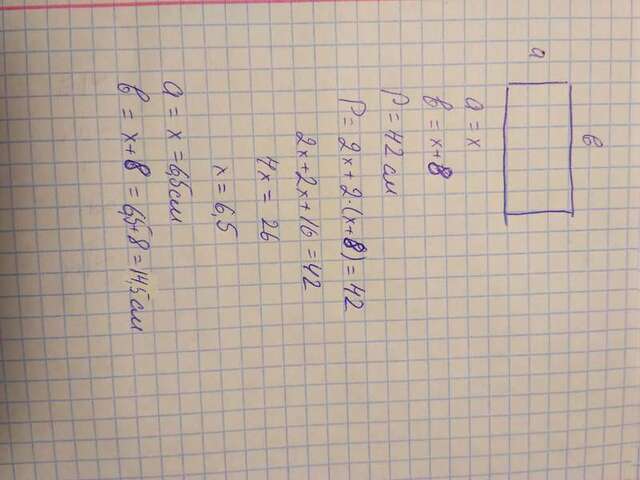 a
в
a = x
в = x+8
P = 42 см
P = 2x + 2·(x+8) = 42
2x+2x+16 = 42
4x = 26
x = 6,5
a = x = 6,5 см
в = x+8 = 6,5+8 = 14,5 см